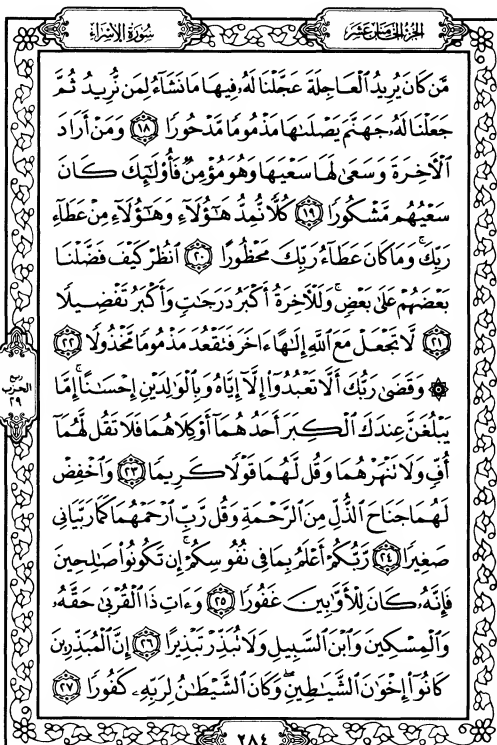 سُورَةُ الإِسْرَاءِ
الجُزْءُ الخَامِسَ عَشَرَ
مَّن كَانَ يُرِيدُ ٱلْعَاجِلَةَ عَجَّلْنَا لَهُۥ فِيهَا مَا نَشَآءُ لِمَن نُّرِيدُ ثُمَّ
جَعَلْنَا لَهُۥ جَهَنَّمَ يَصْلَىٰهَا مَذْمُومًا مَّدْحُورًا ١٨ وَمَنْ أَرَادَ
ٱلْأَخِرَةَ وَسَعَىٰ لَهَا سَعْيَهَا وَهُوَ مُؤْمِنٌ فَأُو۟لَٰٓئِكَ كَانَ
سَعْيُهُم مَّشْكُورًا ١٩ كُلًّا نُّمِدُّ هَٰٓؤُلَآءِ وَهَٰٓؤُلَآءِ مِنْ عَطَآءِ
رَبِّكَ ۚ وَمَا كَانَ عَطَآءُ رَبِّكَ مَحْظُورًا ٢٠ ٱنظُرْ كَيْفَ فَضَّلْنَا
بَعْضَهُمْ عَلَىٰ بَعْضٍ ۚ وَلَلْأَخِرَةُ أَكْبَرُ دَرَجَٰتٍ وَأَكْبَرُ تَفْضِيلًا
٢١ لَّا تَجْعَلْ مَعَ ٱللَّهِ إِلَٰهًا ءَاخَرَ فَتَقْعُدَ مَذْمُومًا مَّخْذُولًا ٢٢
۞ وَقَضَىٰ رَبُّكَ أَلَّا تَعْبُدُوٓا۟ إِلَّآ إِيَّاهُ وَبِٱلْوَٰلِدَيْنِ إِحْسَٰنًا ۚ إِمَّا
يَبْلُغَنَّ عِندَكَ ٱلْكِبَرَ أَحَدُهُمَآ أَوْ كِلَاهُمَا فَلَا تَقُل لَّهُمَآ
أُفٍّ وَلَا تَنْهَرْهُمَا وَقُل لَّهُمَا قَوْلًا كَرِيمًا ٢٣ وَٱخْفِضْ
لَهُمَا جَنَاحَ ٱلذُّلِّ مِنَ ٱلرَّحْمَةِ وَقُل رَّبِّ ٱرْحَمْهُمَا كَمَا رَبَّيَانِى
صَغِيرًا ٢٤ رَّبُّكُمْ أَعْلَمُ بِمَا فِى نُفُوسِكُمْ ۚ إِن تَكُونُوا۟ صَٰلِحِينَ
فَإِنَّهُۥ كَانَ لِلْأَوَّٰبِينَ غَفُورًا ٢٥ وَءَاتِ ذَا ٱلْقُرْبَىٰ حَقَّهُۥ
وَٱلْمِسْكِينَ وَٱبْنَ ٱلسَّبِيلِ وَلَا تُبَذِّرْ تَبْذِيرًا ٢٦ إِنَّ ٱلْمُبَذِّرِينَ
كَانُوٓا۟ إِخْوَٰنَ ٱلشَّيَٰطِينِ ۖ وَكَانَ ٱلشَّيْطَٰنُ لِرَبِّهِۦ كَفُورًا ٢٧
ربع
الحزب
٢٩
٢٨٤